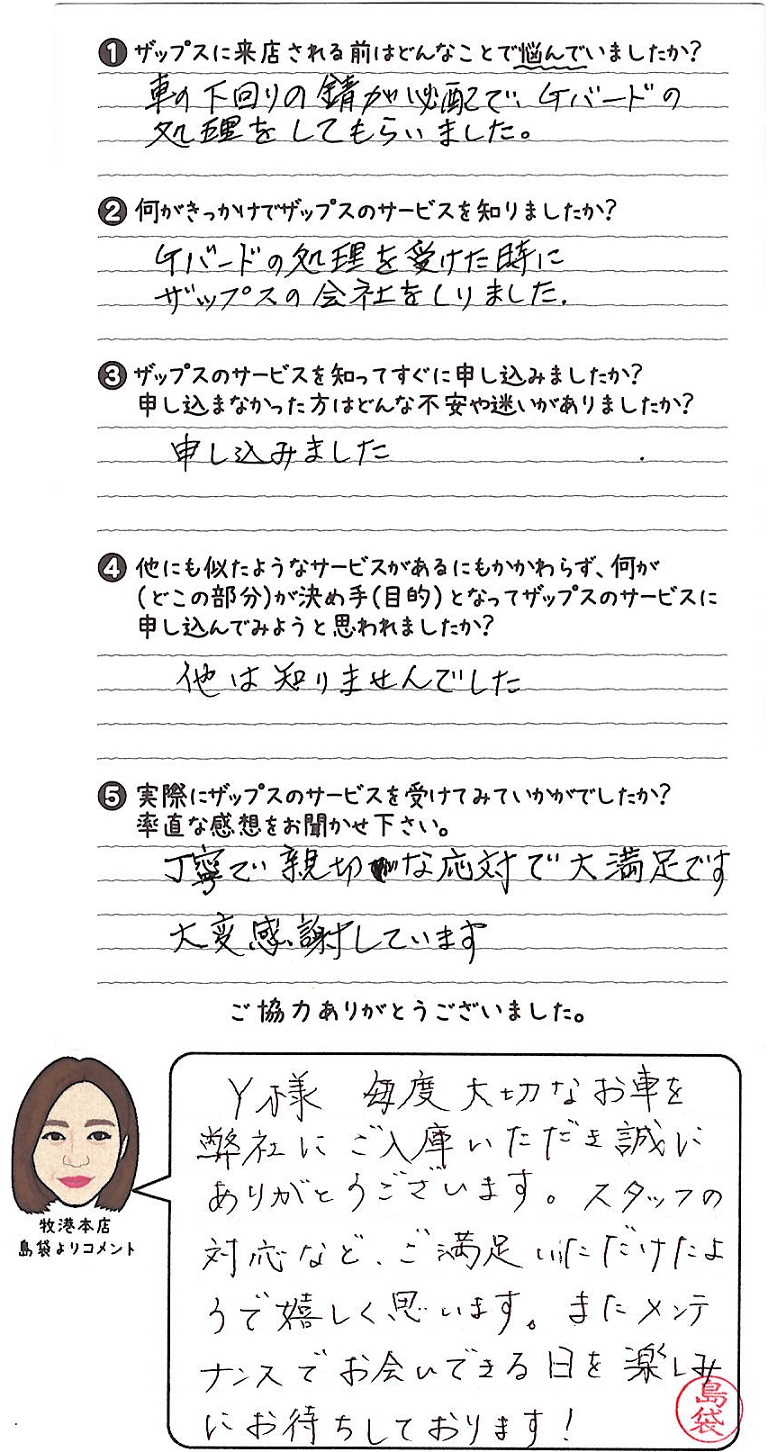 1 ザップスに来店される前はどんなことで悩んでいましたか?
車の下回りの錆が心配で、Gバードの
処理をしてもらいました。
2 何がきっかけでザップスのサービスを知りましたか?
Gバードの処理を受けた時に
ザップスの会社をしりました.
3 ザップスのサービスを知ってすぐに申し込みましたか?
申し込まなかった方はどんな不安や迷いがありましたか?
申し込みました
4 他にも似たようなサービスがあるにもかかわらず、何が
(どこの部分)が決め手(目的)となってザップスのサービスに
申し込んでみようと思われましたか?
他は知りませんでした
5 実際にザップスのサービスを受けてみていかがでしたか?
率直な感想をお聞かせ下さい。
丁寧で親切な応対で大満足です
大変感謝しています
ご協力ありがとうございました。
Y様 毎度大切なお車を
弊社にご入庫いただき誠に
ありがとうございます。スタッフの
対応など、ご満足いただけたよ
うで嬉しく思います。またメンテ
ナンスでお会いできる日を楽しみ
にお待ちしております!
島袋
牧港本店
島袋よりコメント